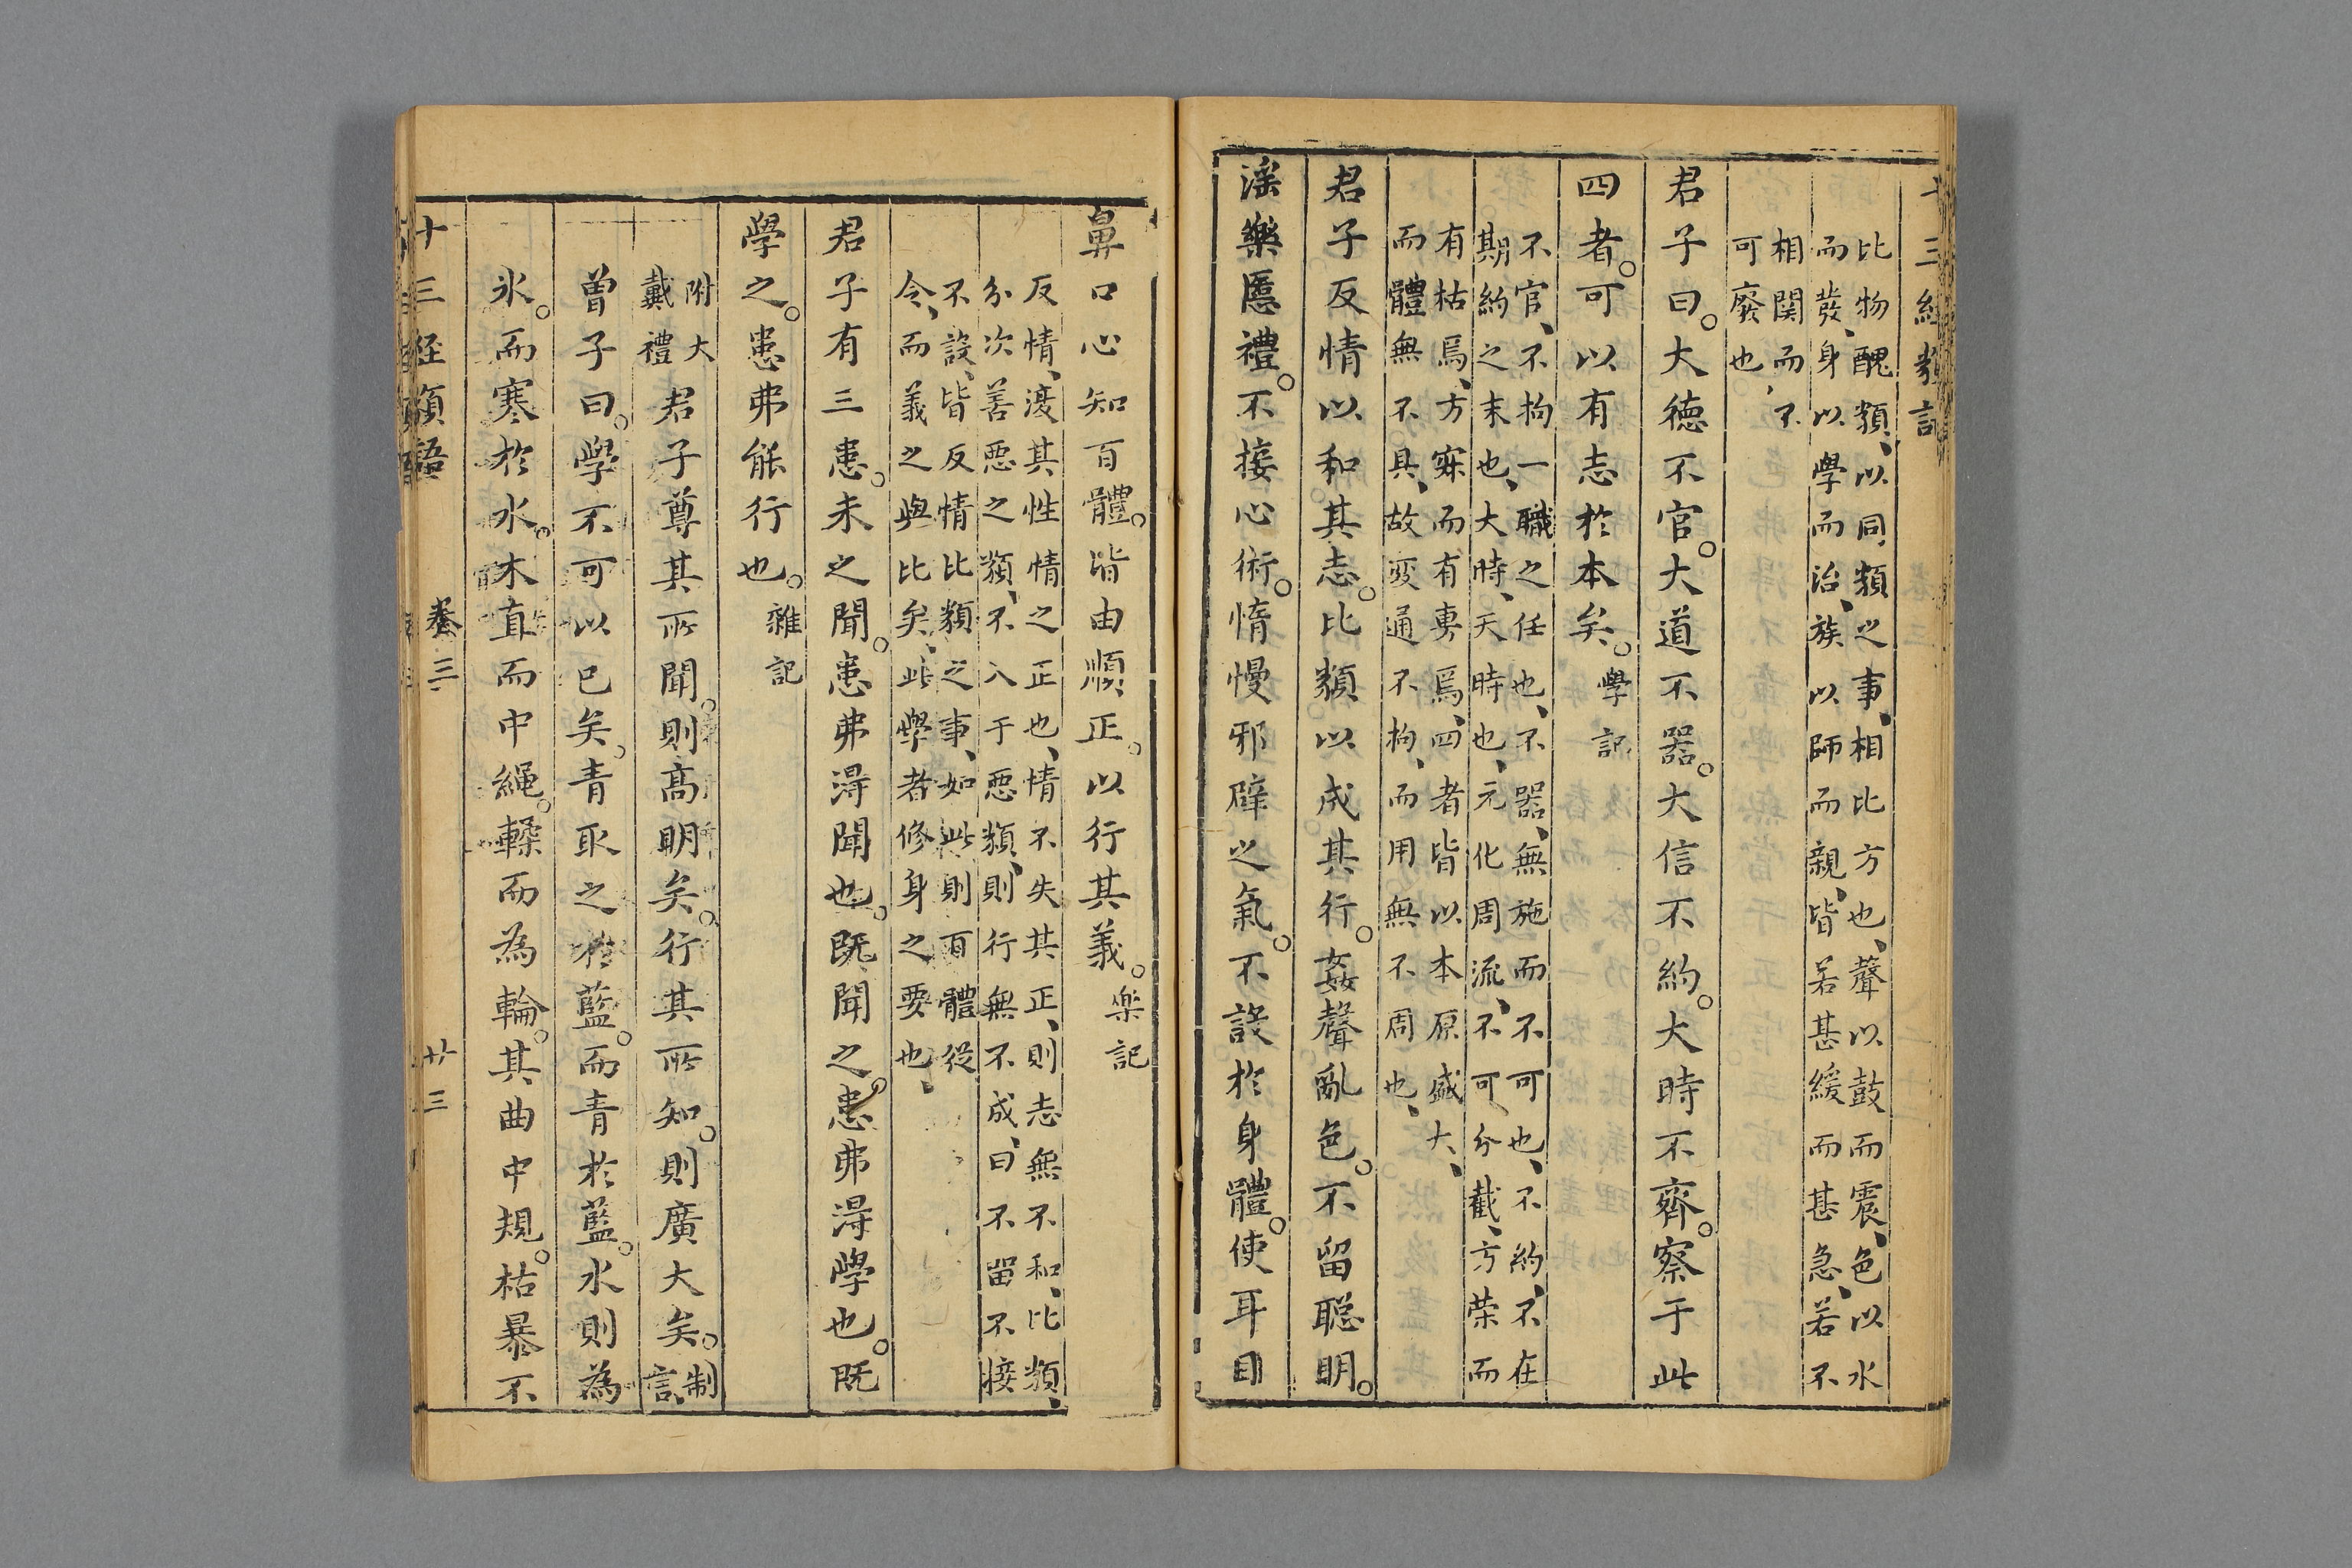 十三經類語
比物醜類、以同類之事、相比方也、聲以鼓而震、色以水
而發、身以學而治、族以師而親、皆若甚緩而甚急、若不
相関而不
可廢也
君子曰。大徳不官。大道不器。大信不約。大時不齊。察于此
四者。可以有志於本矣。學記
不官、不拘一職之任也、不器、無施而不可也、不約、不在
期約之末也、大時、天時也、元化周流、不可分截、方荣而
有枯焉、方寐而有専焉、四者皆以本原盛大、
而體無不具、故変通不拘、而用無不周也、
君子反情以和其志。比類以成其行。姦聲亂色。不留聡明。
滛樂慝禮。不接心術。惰慢邪辟之氣。不設於身體。使耳目
鼻口心知百體。皆由順正。以行其義。楽記
反情、復其性情之正也、情不失其正、則志無不和、比類、
分次善惡之類、不入于惡類、則行無不成、曰不留不接
不設、皆反情比類之事、如此則百體從
令、而義之與比矣、此學者修身之要也、
君子有三患。未之聞。患弗淂聞也。既聞之。患弗淂學也。既
學之。患弗能行也。雜記
附大
戴禮
君子尊其所聞。則髙明矣。行其所知。則廣大矣。制
言、
曽子曰。學不可以已矣。青取之於藍。而青於藍。水則為
氷。而寒於水。木直而中繩。輮而為輪。其曲中規。枯暴不
十三経類語 卷三 廿三